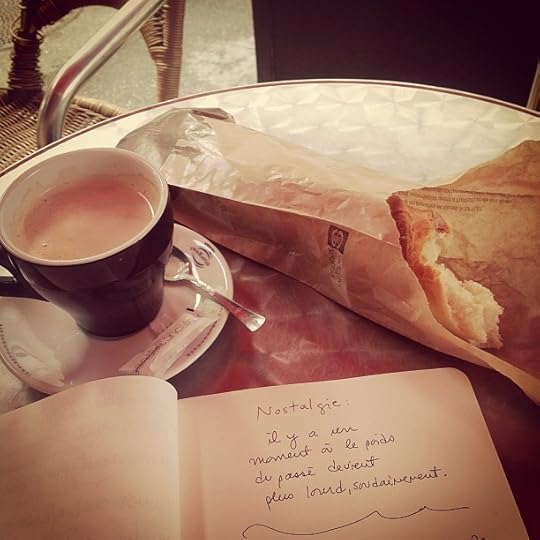 Nostalgie:
il y a un
moment à le poids
du passé devient
plus lourd, soudainement.